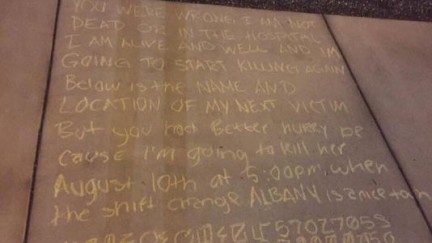 YOU WERE WRONG I AM NOT
DEAD OR IN THE HOSPITAL
I AM ALIVE AND WELL AND IM
GOING TO START KILLING AGAIN
Below is the NAME AND
LOCATION OF MY NEXT VICTIM
But you had Better hurry be
cause I'm going to kill her
August 10th at 5:00pm when
the shift change ALBANY is a nice town